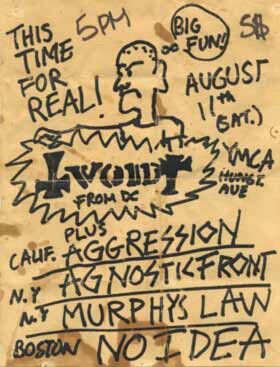 THIS
TIME
FOR
REAL!
5PM
BIG
FUN!
5$
AUGUST
11TH
(SAT.)
YMCA
AVE
FROM DC
PLUS
CALIF. AGGRESSION
N.Y AGNOSTIC FRONT
N.Y MURPHYS LAW
BOSTON NO IDEA